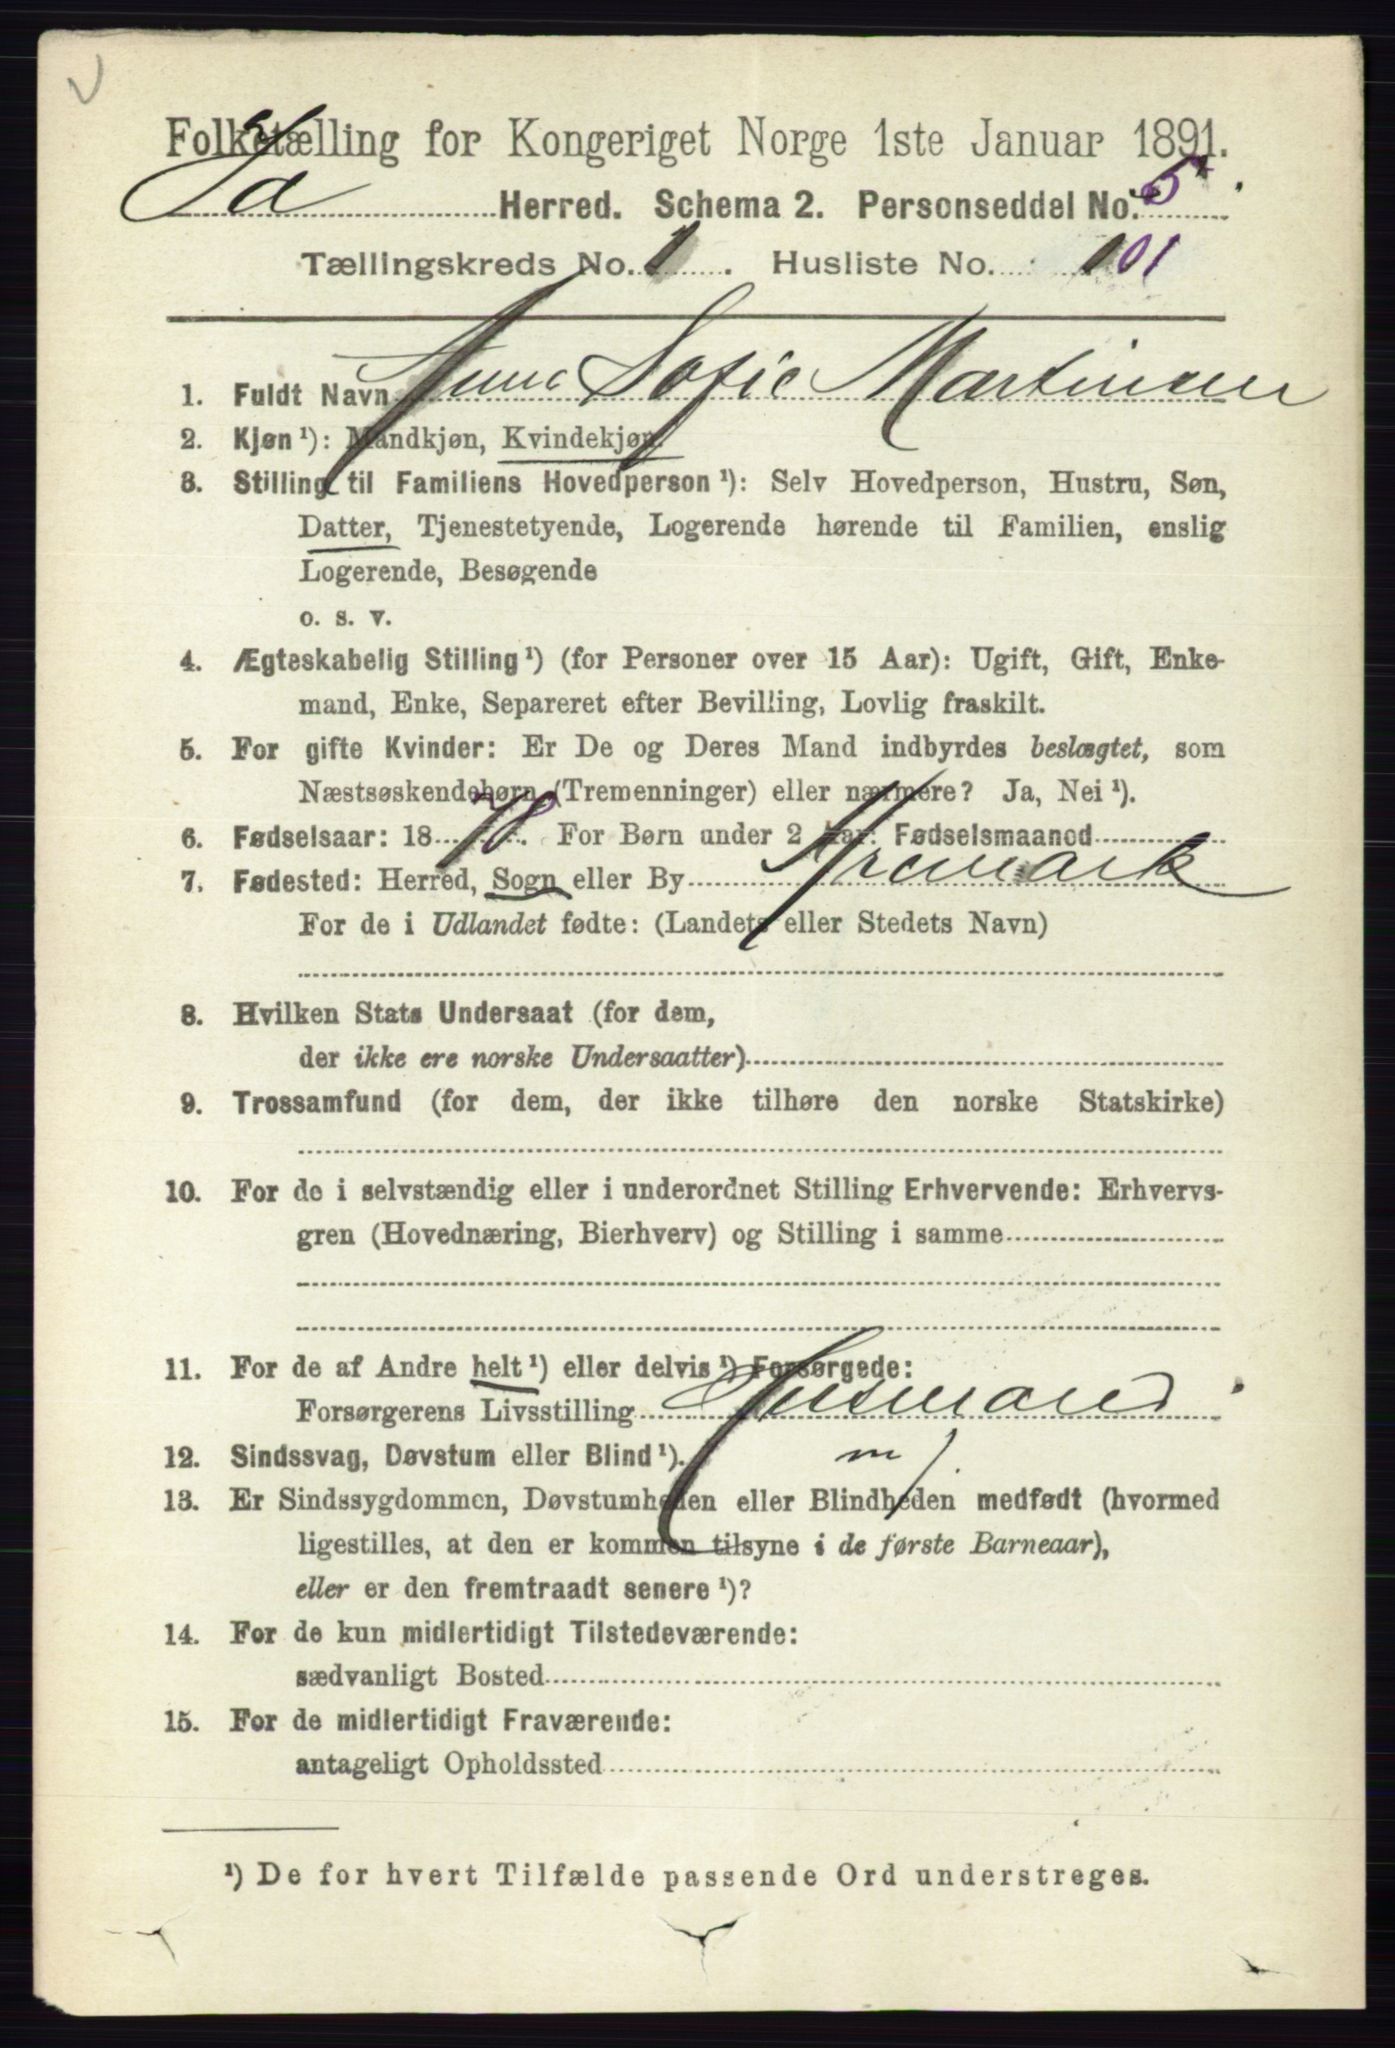 Folketælling for Kongeriget Norge 1ste Januar 1891.
Id Herred. Schema 2. Personseddel No. 5
Tællingskreds No. 1. Husliste No. 101
1. Fuldt Navn Anne Sofie Martinsen
2. Kjøn ¹): Mandkjøn, Kvindekjøn.
3. Stilling til Familiens Hovedperson ¹): Selv Hovedperson, Hustru, Søn,
Datter, Tjenestetyende, Logerende hørende til Familien, enslig
Logerende, Besøgende
o. s. v.
4. Ægteskabelig Stilling ¹) (for Personer over 15 Aar): Ugift, Gift, Enke-
mand, Enke, Separeret efter Bevilling, Lovlig fraskilt.
5. For gifte Kvinder: Er De og Deres Mand indbyrdes beslægtet, som
Næstsøskendebørn (Tremenninger) eller nærmere? Ja, Nei ¹).
6. Fødselsaar: 1878. For Børn under 2 Aar: Fødselsmaaned
7. Fødested: Herred, Sogn eller By Aremark
For de i Udlandet fødte: (Landets eller Stedets Navn)
8. Hvilken Stats Undersaat (for dem,
der ikke ere norske Undersaatter)
9. Trossamfund (for dem, der ikke tilhøre den norske Statskirke)
10. For de i selvstændig eller i underordnet Stilling Erhvervende: Erhvervs-
gren (Hovednæring, Bierhverv) og Stilling i samme
11. For de af Andre helt ¹) eller delvis ¹) Forsørgede:
Forsørgerens Livsstilling Husmand
12. Sindssvag, Døvstum eller Blind ¹). m
13. Er Sindssygdommen, Døvstumheden eller Blindheden medfødt (hvormed
ligestilles, at den er kommen tilsyne i de første Barneaar),
eller er den fremtraadt senere ¹)?
14. For de kun midlertidigt Tilstedeværende:
sædvanligt Bosted
15. For de midlertidigt Fraværende:
antageligt Opholdssted
¹) De for hvert Tilfælde passende Ord understreges.